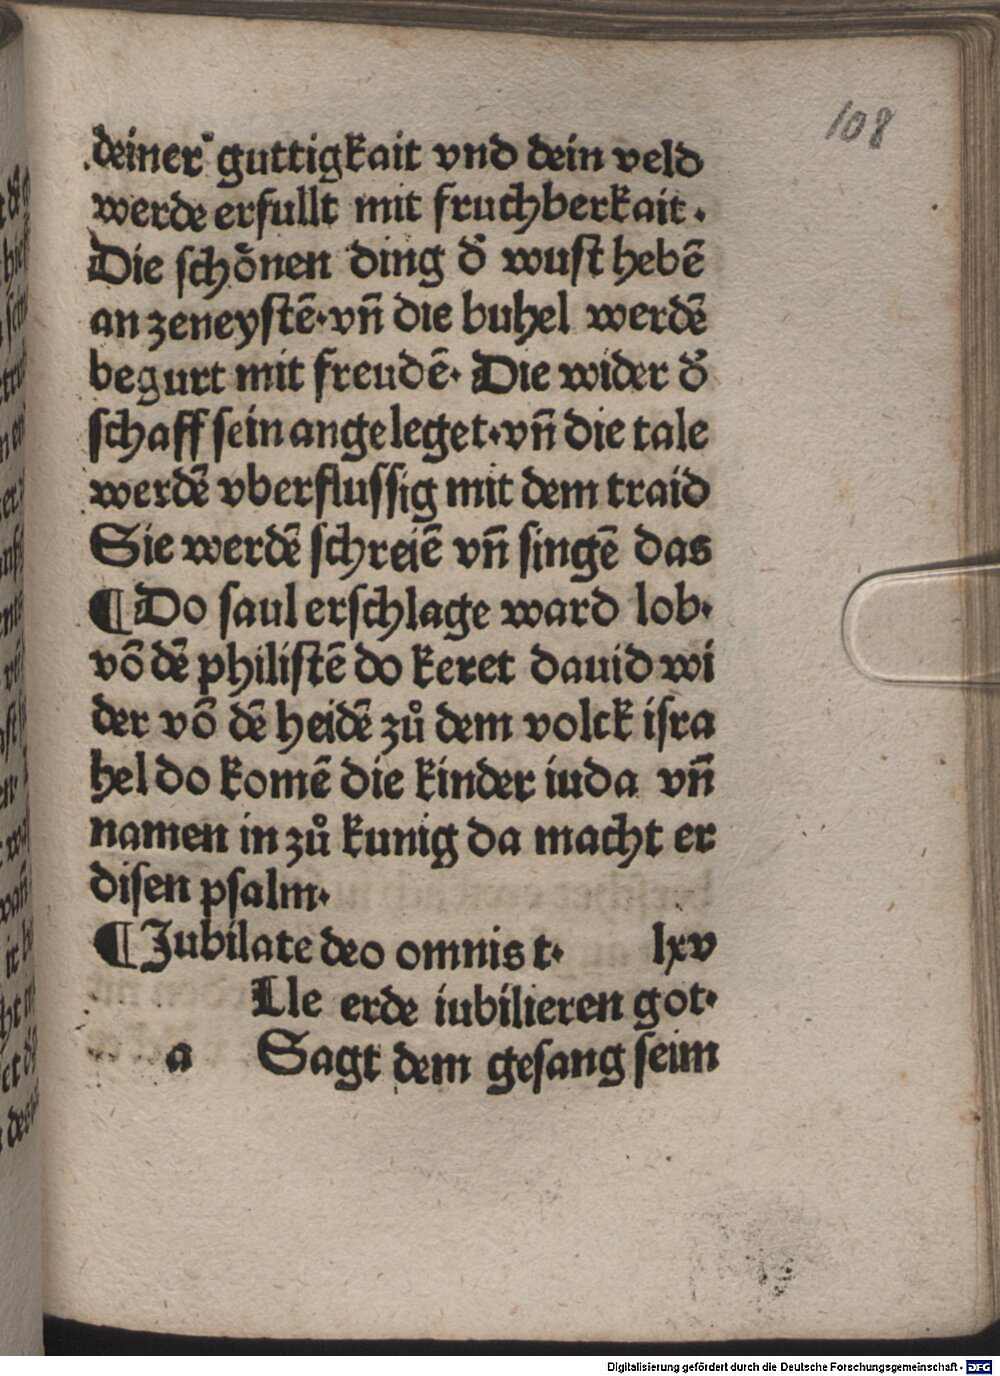 108
deiner guttigkait vnd dein veld
werde erfullt mit fruchberkait.
Die schönen ding d̕ wust hebē
an zeneystē·vn̄ die buhel werdē
begurt mit freudē· Die wider d̕
schaff sein angeleget·vn̄ die tale
werdē vberflussig mit dem traid
Sie werdē schreiē vn̄ singē das
¶ Do saul erschlage ward lob·
vō dē philistē do keret dauid wi
der vō dē heidē zů dem volck isra
hel do komē die kinder iuda vn̄
namen in zů kunig da macht er
disen psalm·
¶ Jubilate deo omnis t· lxv
Lle erde iubilieren got·
a Sagt dem gesang seim
Digitalisierung gefördert durch die Deutsche Forschungsgemeinschaft - DFG